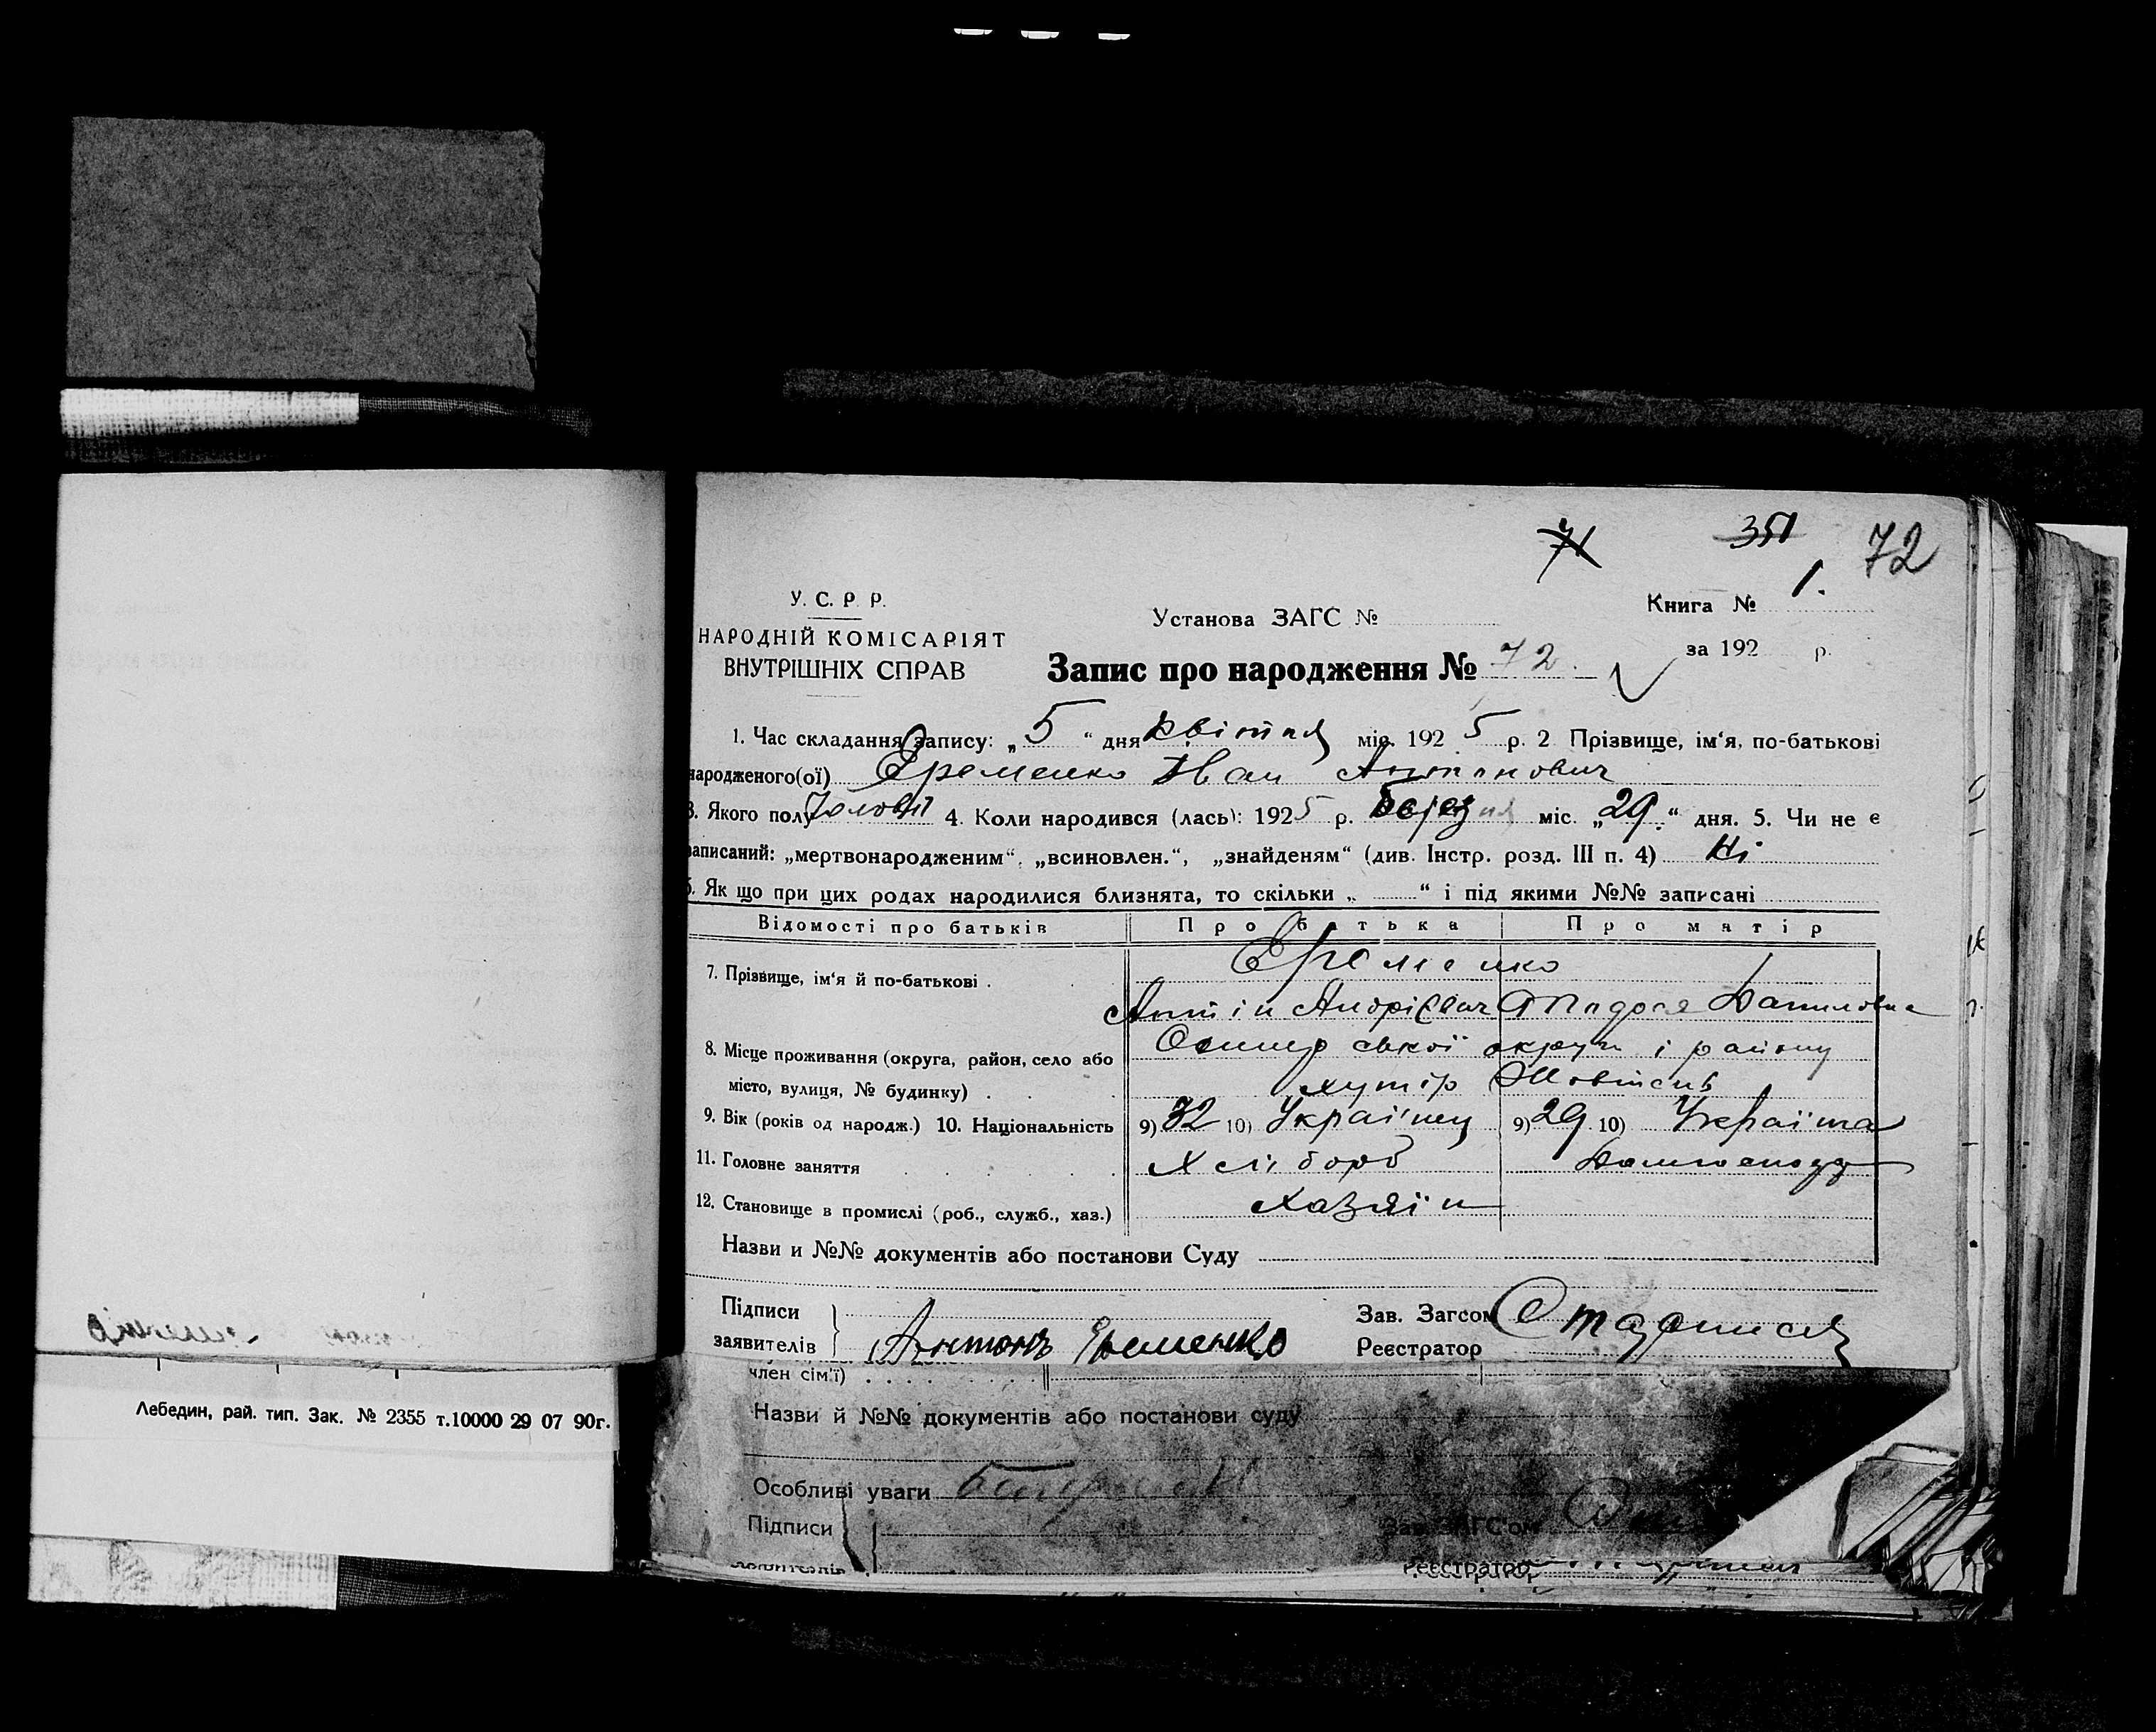 351
72
71
У. С. Р. Р.
НАРОДНІЙ КОМІСАРІЯТ
ВНУТРІШНІХ СПРАВ
Установа ЗАГС №
Книга № 1.
за 192 р.
Запис про народження № 72.
1. Час складання запису: „5“ дня квітня міс. 1925 р. 2 Прізвище, ім‘я, по-батькові
народженого(ої) Єременко Іван Антонович
3. Якого полу Чоловіч 4. Коли народився (лась): 1925 р. Березня міс. „29.“ дня. 5. Чи не є
записаний: „мертвонародженим“, „всиновлен.“, „знайденям“ (див. Інстр. розд. III п. 4) Ні
6. Як що при цих родах народилися близнята, то скільки „ “ і під якими №№ записані
Відомості про батьків Про батька Про матір
7. Прізвище, ім‘я й по-батькові . Єременко
Антін Андрієвич Тодося Даниловна
8. Місце проживання (округа, район, село або
місто, вулиця, № будинку) . ської округи і району
хутір
9. Вік (років од народж.) 10. Національність 9) 32 10) Українец 9) 29 10) Українка
11. Головне заняття Хлібороб Домгосподр
12. Становище в промислі (роб., служб., хаз.) Хазяїн
Назви и №№ документів або постанови Суду
Підписи
заявителів Антонъ Ерьоменко
Зав. Загсом
Реєстратор
член сім'ї)
Назви й №№ документів або постанови суду
Особливі уваги
Підписи
Зав. ЗАГС'ом
заявителів
Реєстратор
Лебедин, рай. тип. Зак. № 2355 т.10000 29 07 90г.